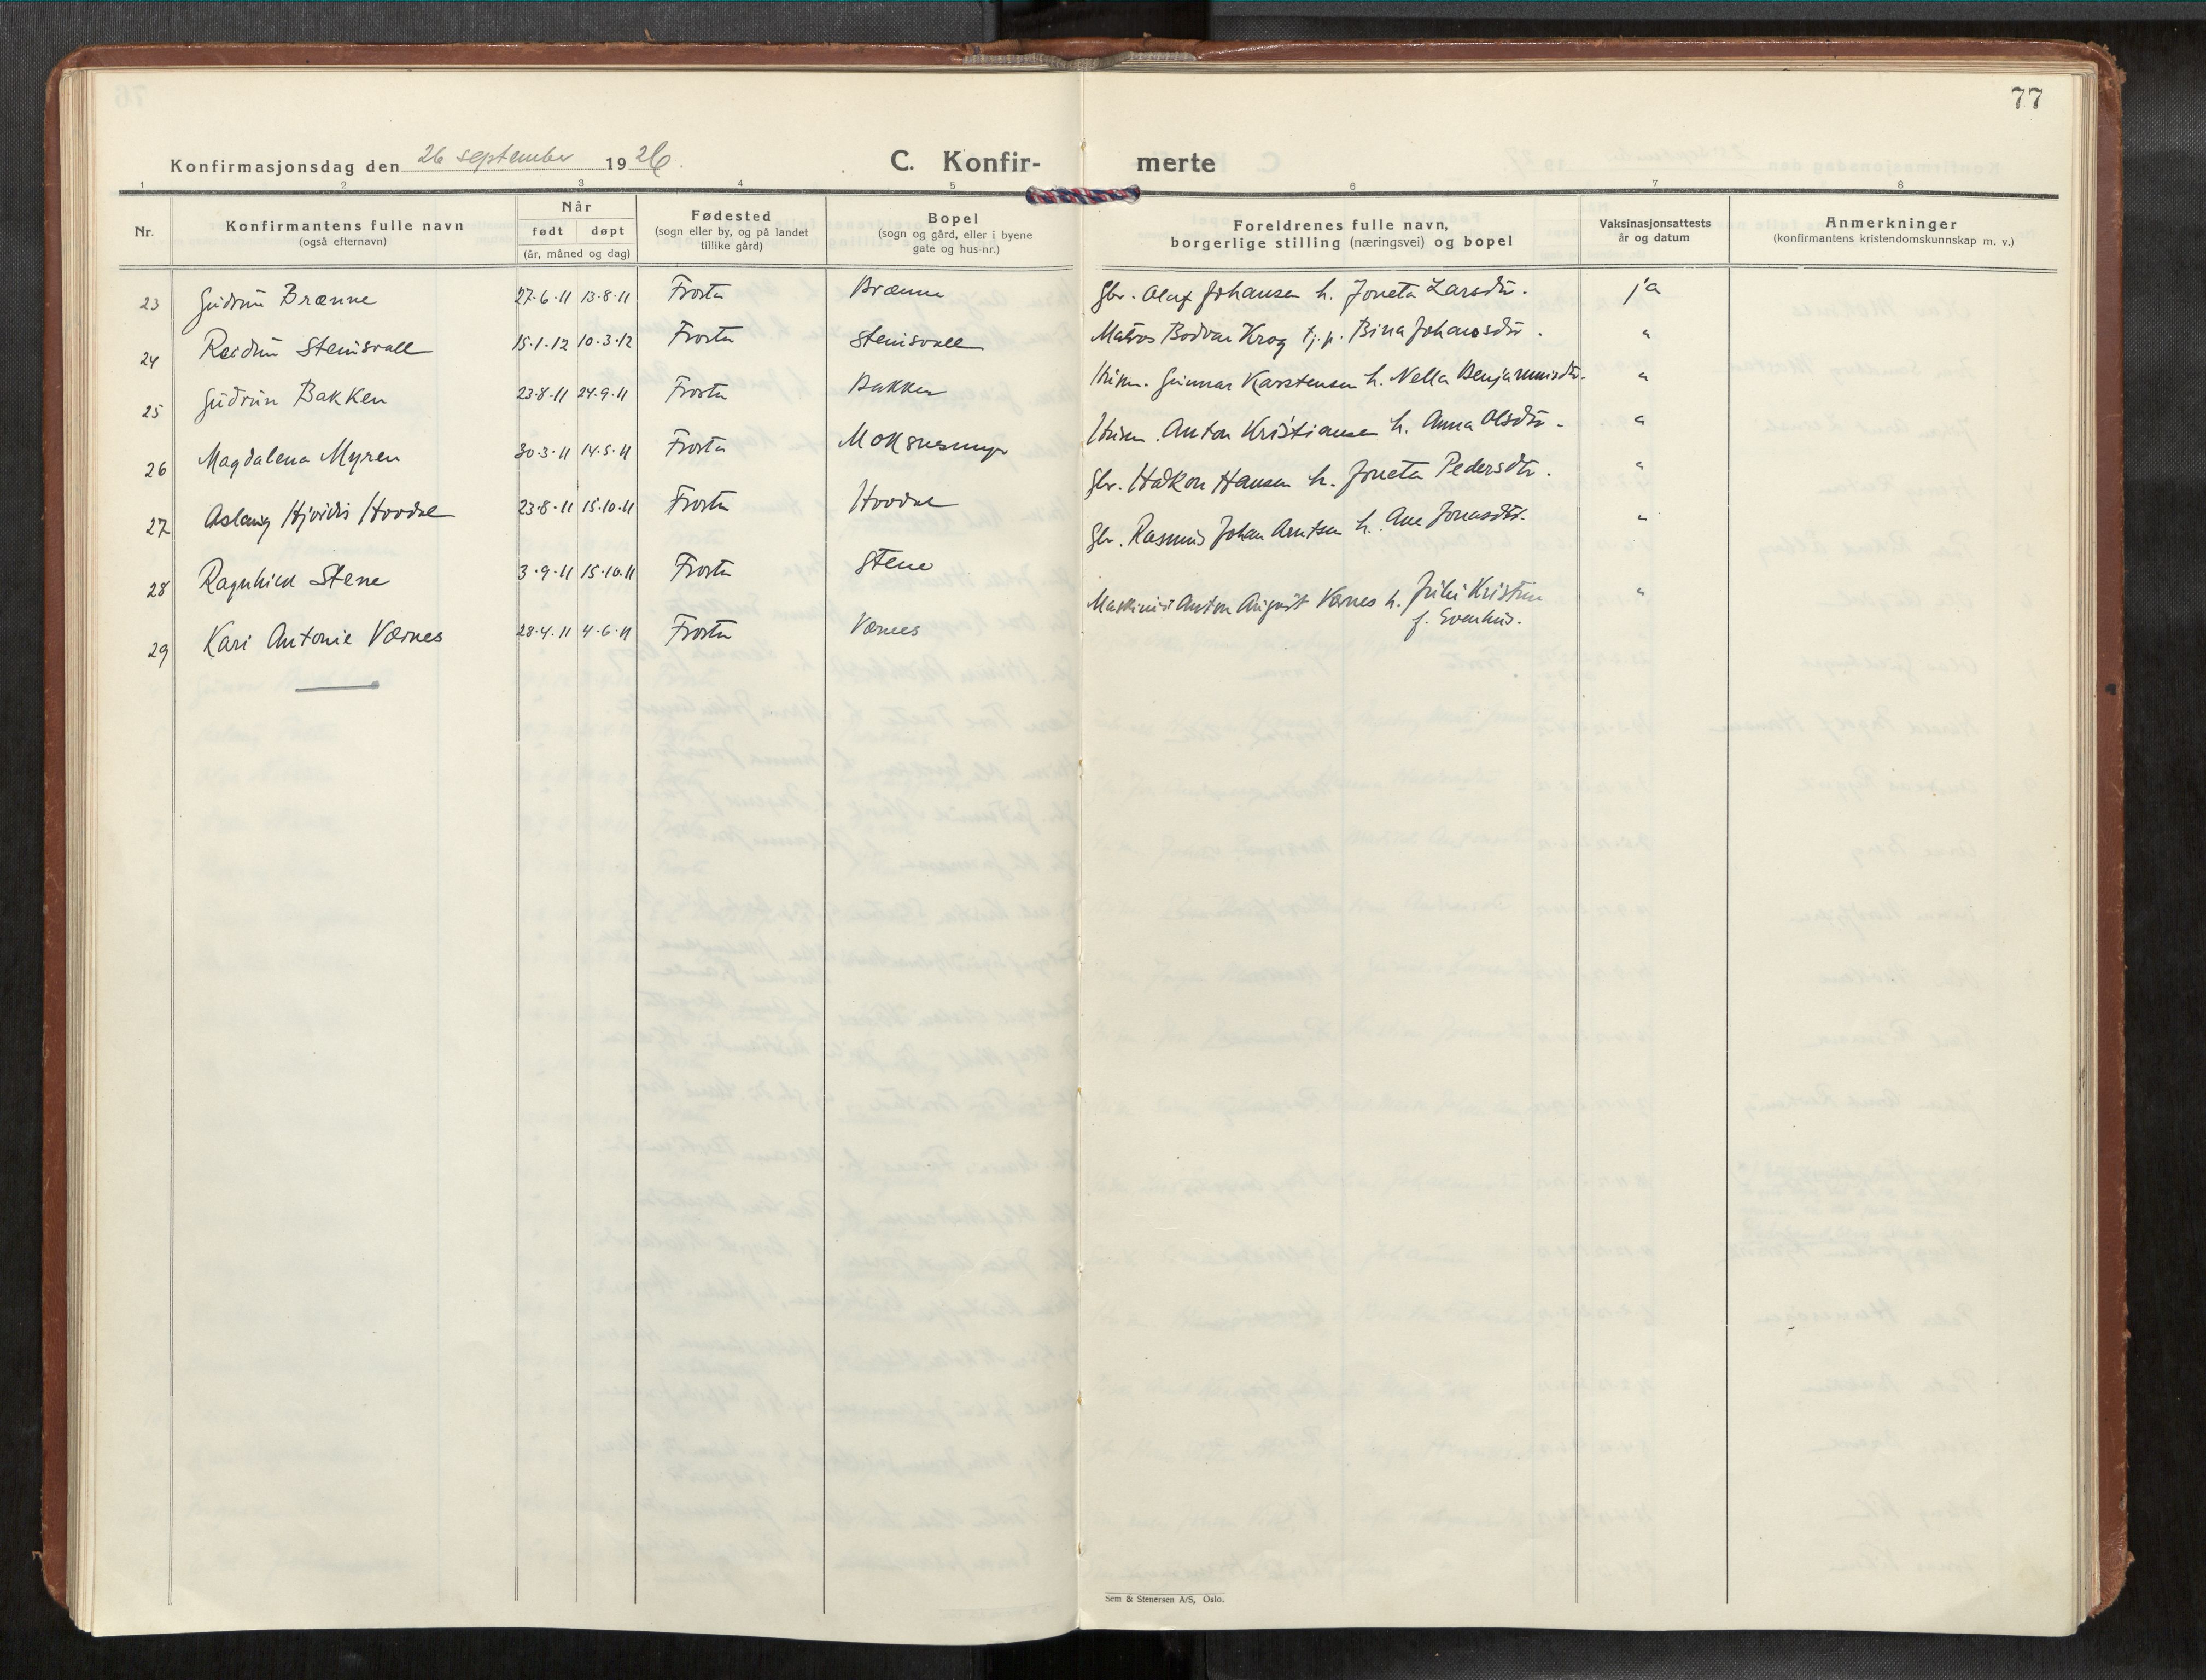 77
Konfirmasjonsdag den 26 september 1926.
C. Konfir- merte
1 2 3 4 5 6 7 8
Nr.
Konfirmantens fulle navn
(også efternavn)
Når
født døpt
(år, måned og dag)
Fødested
(sogn eller by, og på landet
tillike gård)
Bopel
(sogn og gård, eller i byene
gate og hus-nr.)
Foreldrenes fulle navn,
borgerlige stilling (næringsvei) og bopel
Vaksinasjonsattests
år og datum
Anmerkninger
(konfirmantens kristendomskunnskap m. v.)
23 Gudrun Brænne 27.6.11 13.8.11 Frosta Brænne Gbr. Olaf Johansen h. Joneta Larsdtr. ja
24 Reidun Steinsvall 15.1.12 10.3.12 Frosta Steinsvall Matros Bodvar Krog tj.p. Bina Johansdtr. "
25 Gudrun Bakken 23.8.11 24.9.11 Frosta Bakken Husm. Gunnar Karstensen h. Nella Benjaminsdtr. "
26 Magdalena Myren 30.3.11 14.5.11 Frosta Moksnesmyr Husm. Anton Kristiansen h. Anna Olsdtr. "
27 Aslaug Hjørdis Hovdal 23.8.11 15.10.11 Frosta Hovdal Gbr. Håkon Hansen h. Joneta Pedersdtr. "
28 Ragnhild Stene 3.9.11 15.10.11 Frosta Stene Gbr. Rasmus Johan Arntsen h. Ane Jonasdtr. "
29 Kari Antonie Værnes 28.4.11 4.6.11 Frosta Værnes Maskinist Anton August Værnes h. Julie Kristine "
f. Evenhus.
Sem & Stenersen A/S, Oslo.